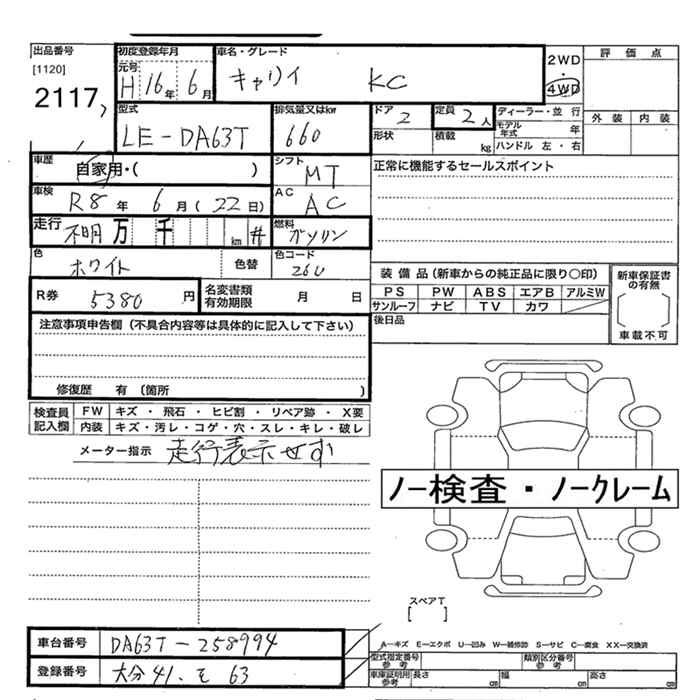 出品番号
[1120]
2117
初度登録年月
元号
H 16年 6月
車名・グレード
キャリイ KC
2WD
・
4WD
評価点
外装 内装
型式
LE-DA63T
排気量又はkw
660
ドア 2
形状
定員 2人
積載 kg
ディーラー・並行
モデル年式 年
ハンドル 左・右
車歴
自家用・( )
シフト
MT
正常に機能するセールスポイント
車検
R8年 6月(22日)
AC
AC
走行
不明 万 千 km #
燃料
ガソリン
色
ホワイト
色替
色コード
26U
装備品(新車からの純正品に限り○印)
PS PW ABS エアB アルミW
サンルーフ ナビ TV カワ
後日品
新車保証書の有無
車載不可
R券 5380円
名変書類有効期限 月 日
注意事項申告欄(不具合内容等は具体的に記入して下さい)
修復歴 有(箇所 )
検査員記入欄
FW キズ・飛石・ヒビ割・リペア跡・X要
内装 キズ・汚レ・コゲ・穴・スレ・キレ・破レ
メーター指示 走行表示せず
ノー検査・ノークレーム
スペアT
[ ]
車台番号 DA63T-258994
登録番号 大分41.を 63
A-キズ E-エクボ U-凹み W-補修跡 S-サビ C-腐食 XX-交換済
型式指定番号参考
類別区分番号参考
車庫証明用参考 長さ cm 幅 cm 高さ cm